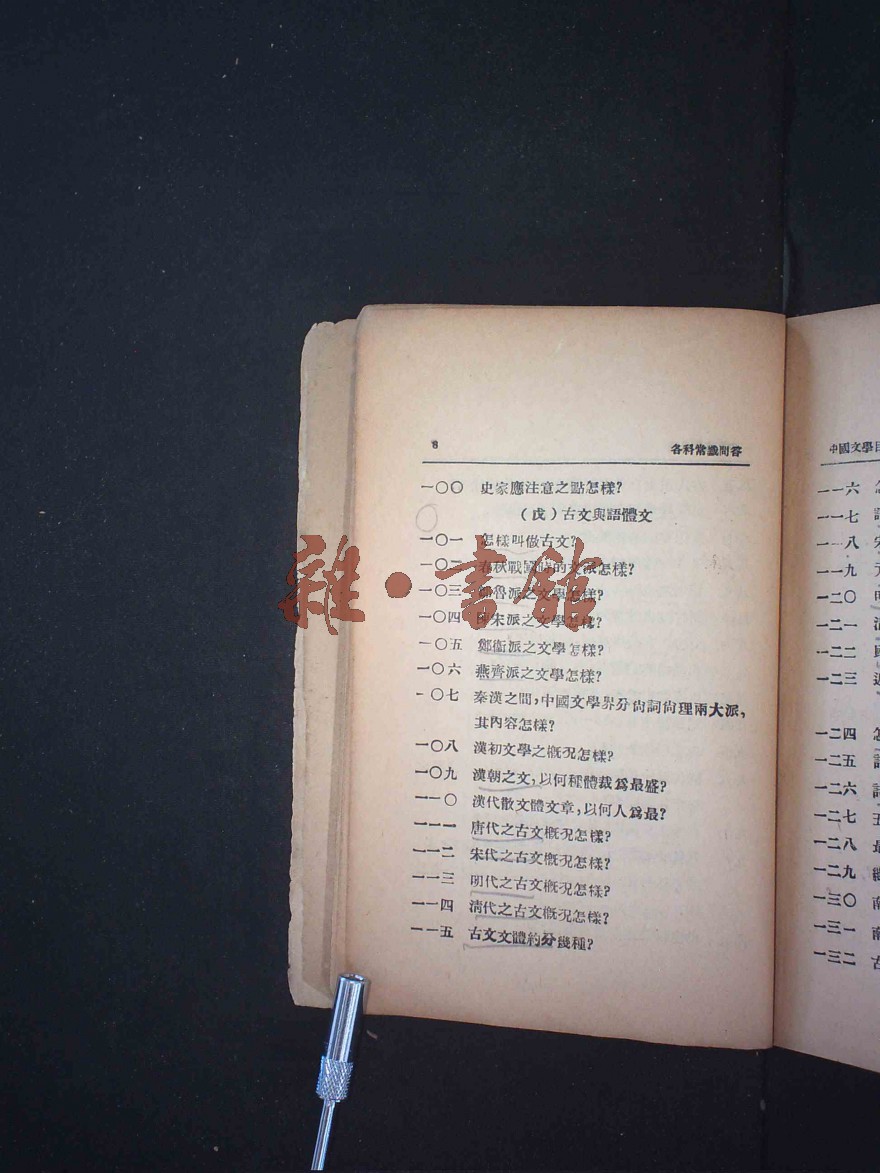 8 各科常識問答
一〇〇 史家應注意之點怎樣?
(戊)古文與語體文
一〇一 怎樣叫做古文?
一〇二 春秋戰國時的文派怎樣?
一〇三 魯派之文學怎樣?
一〇四 宋派之文學怎樣?
一〇五 鄭衞派之文學怎樣?
一〇六 燕齊派之文學怎樣?
一〇七 秦漢之間,中國文學界分尙詞尙理兩大派,
其內容怎樣?
一〇八 漢初文學之槪况怎樣?
一〇九 漢朝之文,以何種體裁爲最盛?
一一〇 漢代散文體文章,以何人爲最?
一一一 唐代之古文槪况怎樣?
一一二 宋代之古文槪况怎樣?
一一三 明代之古文槪况怎樣?
一一四 淸代之古文槪况怎樣?
一一五 古文文體約分幾種?
雜·書館
中國文學
一一六
一一七
一一八
一一九
一二〇
一二一
一二二
一二三
一二四
一二五
一二六
一二七
一二八
一二九
一三〇
一三一
一三二